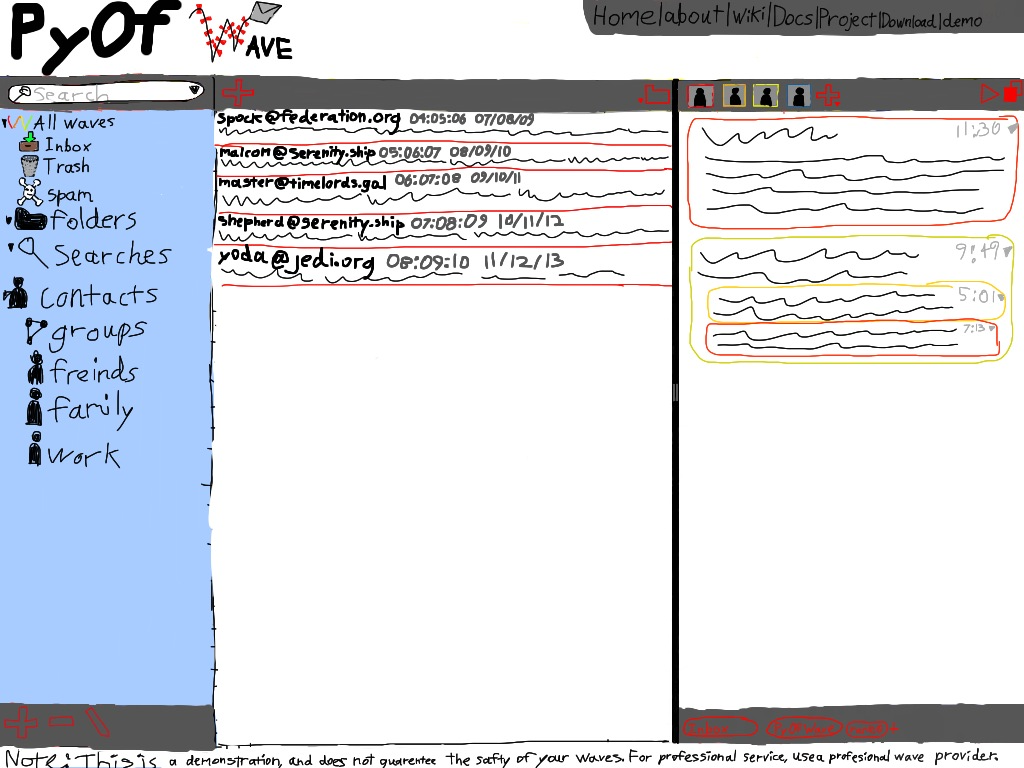 PyOf WAVE
Home|about|wiki|Docs|Project|Download|demo
Search
All waves
Inbox
Trash
spam
folders
Searches
contacts
groups
freinds
family
work
spock@federation.org 04:05:06 07/08/09
malcom@serenity.ship 05:06:07 08/09/10
master@timelords.gal 06:07:08 09/10/11
shepherd@serenity.ship 07:08:09 10/11/12
yoda@jedi.org 08:09:10 11/12/13
11:30
9:49
5:01
7:13
Inbox PyOfWave
Note: This is a demonstration, and does not guarentee the safty of your waves. For professional service, use a profesional wave provider.